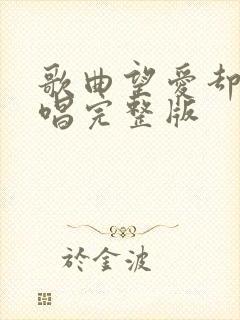 歌曲望爱却
唱完整版
於金波